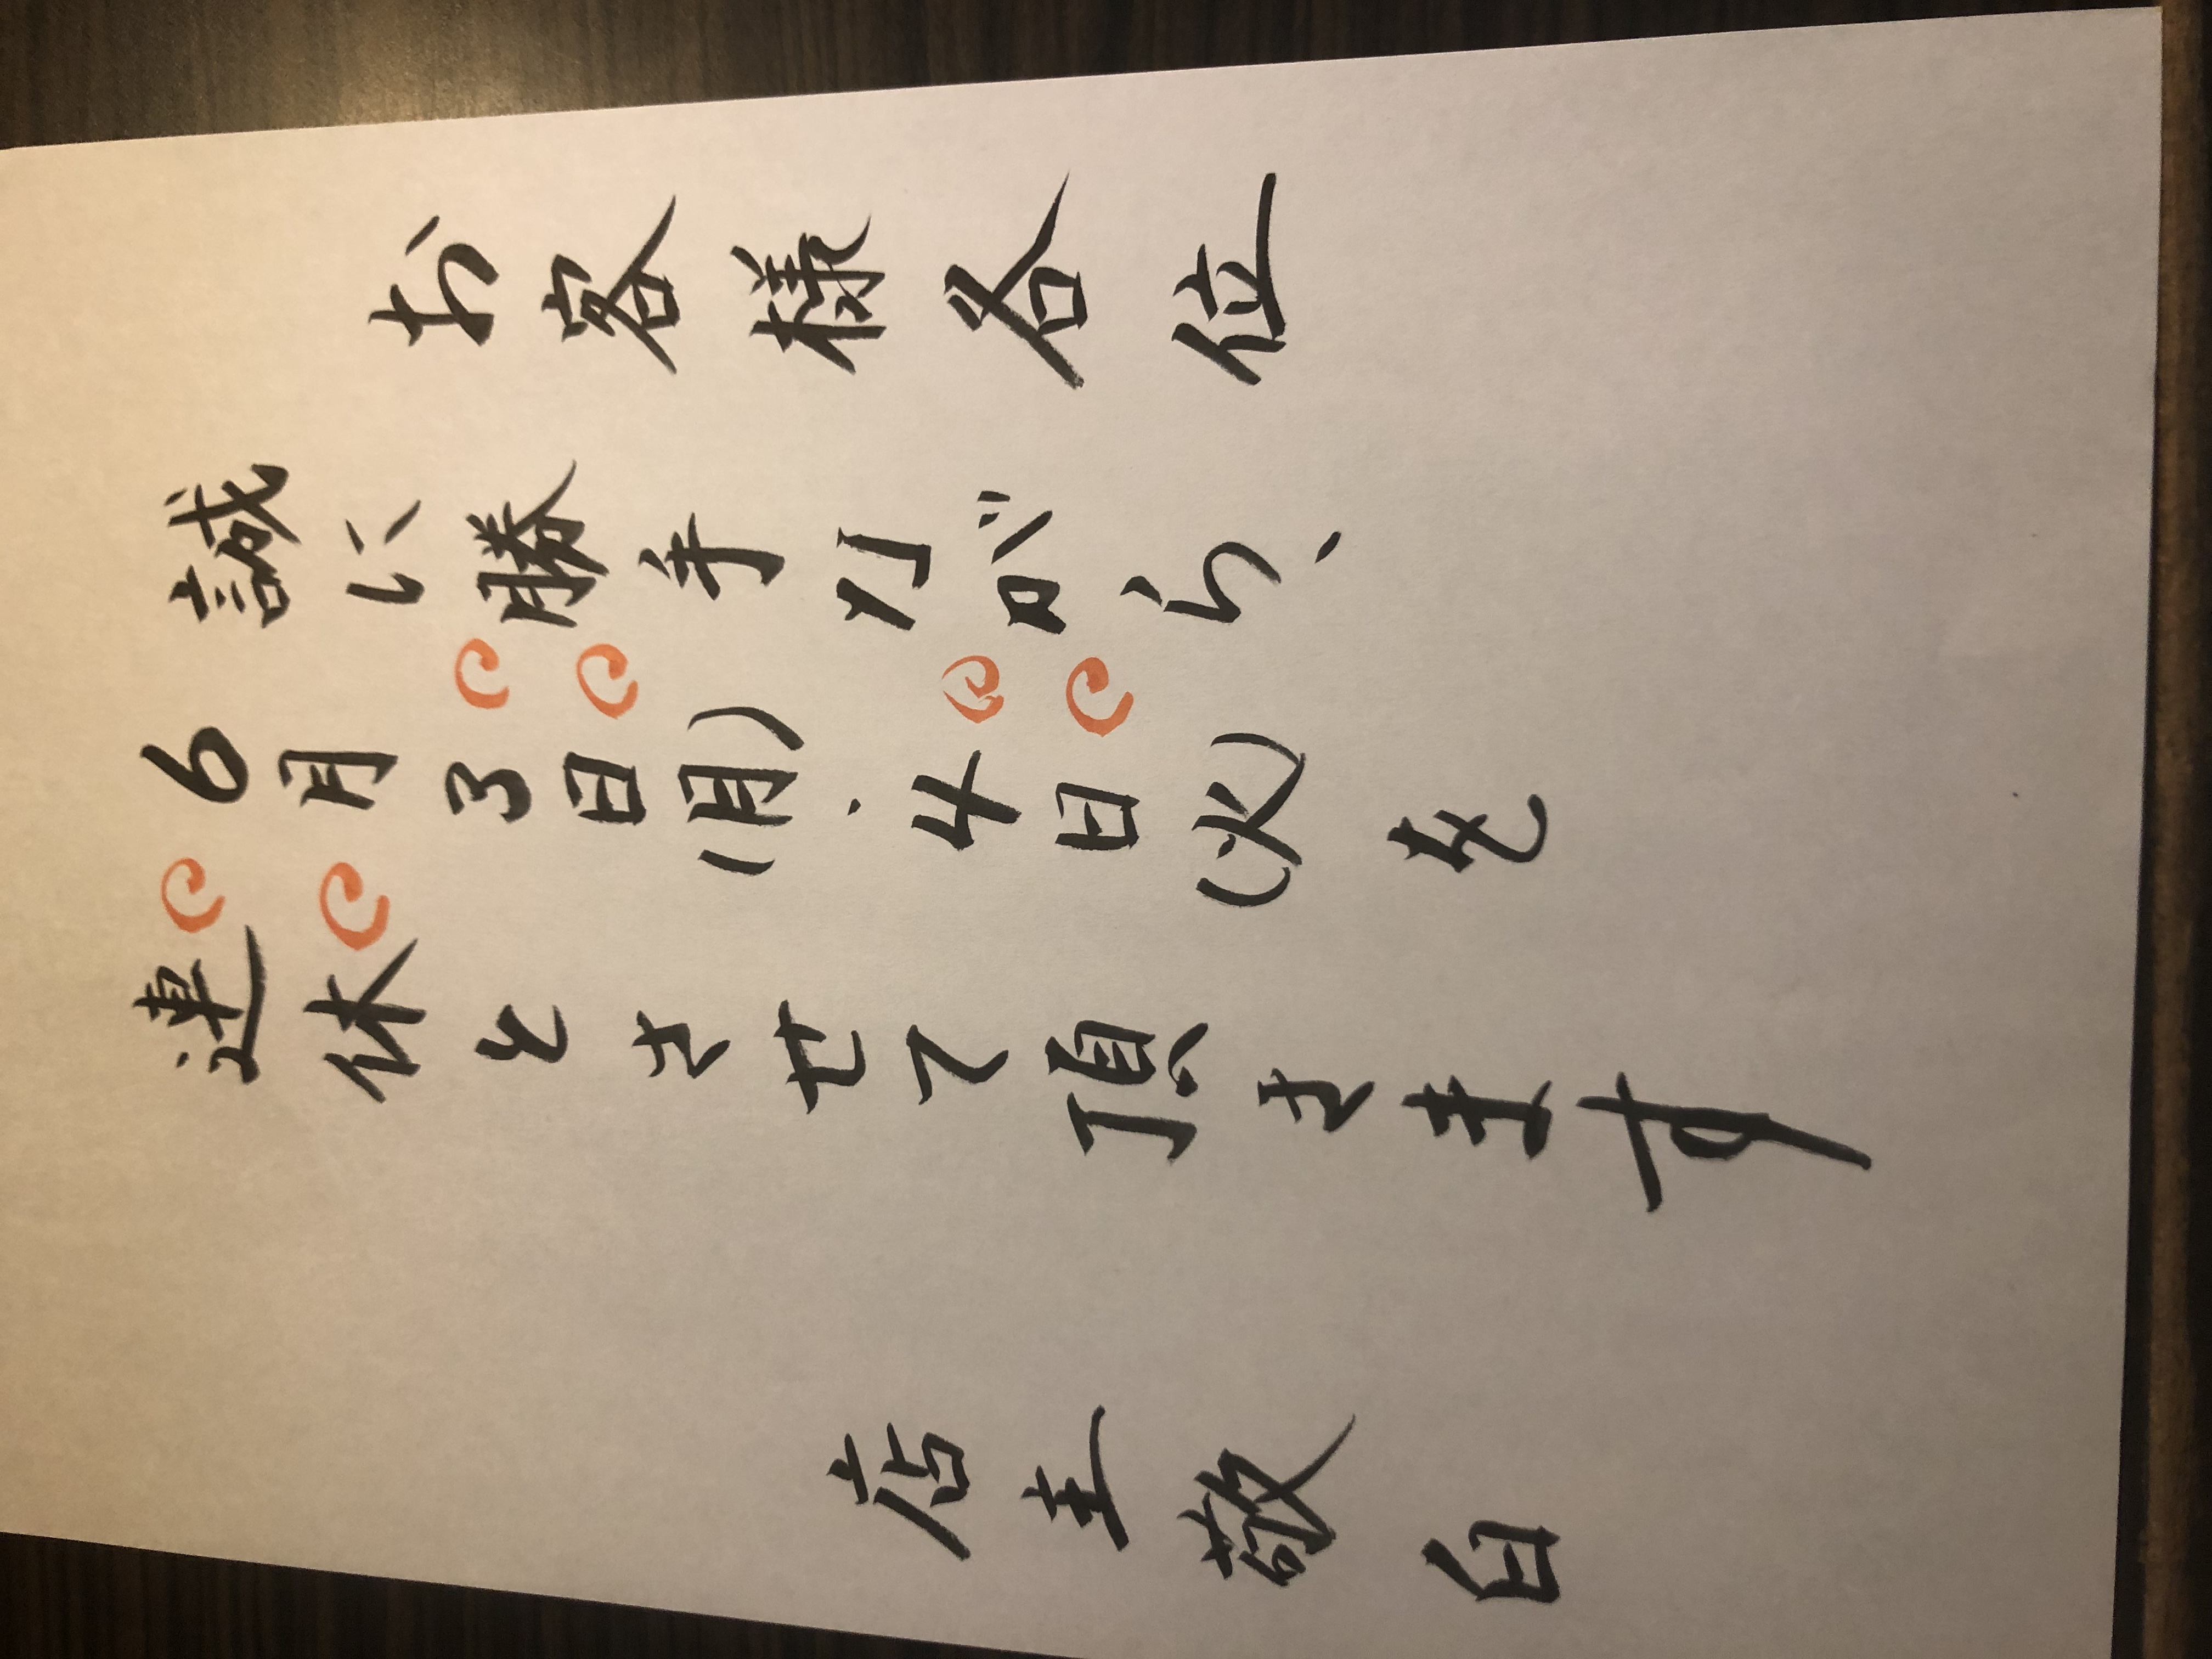 お客様各位
誠に勝手ながら、
6月3日(月)・4日(火)を
連休とさせて頂きます
店主敬白